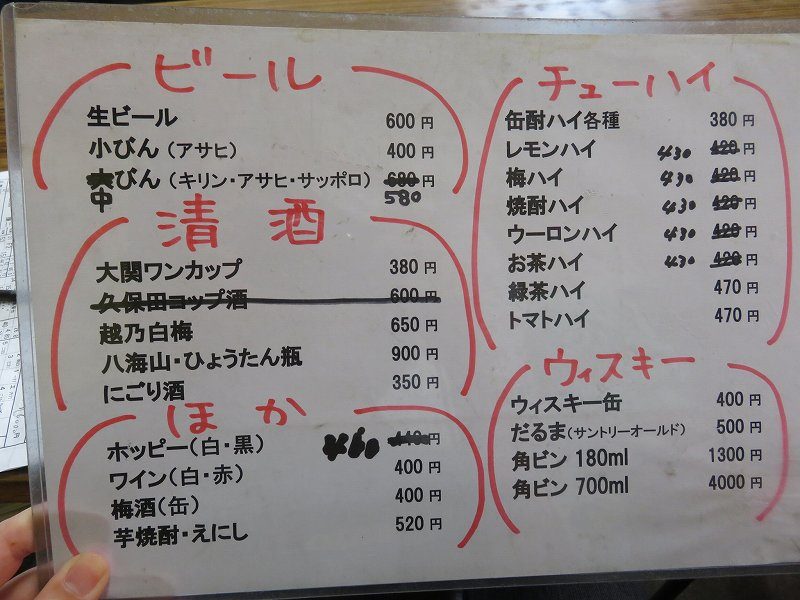 ビール
生ビール 600円
小びん(アサヒ) 400円
大びん(キリン・アサヒ・サッポロ) 680円
中 580
清酒
大関ワンカップ 380円
久保田コップ酒 600円
越乃白梅 650円
八海山・ひょうたん瓶 900円
にごり酒 350円
ほか
ホッピー(白・黒) 460 440円
ワイン(白・赤) 400円
梅酒(缶) 400円
芋焼酎・えにし 520円
チューハイ
缶酎ハイ各種 380円
レモンハイ 430 420円
梅ハイ 430 420円
焼酎ハイ 430 420円
ウーロンハイ 430 420円
お茶ハイ 430 420円
緑茶ハイ 470円
トマトハイ 470円
ウィスキー
ウィスキー缶 400円
だるま(サントリーオールド) 500円
角ビン 180ml 1300円
角ビン 700ml 4000円